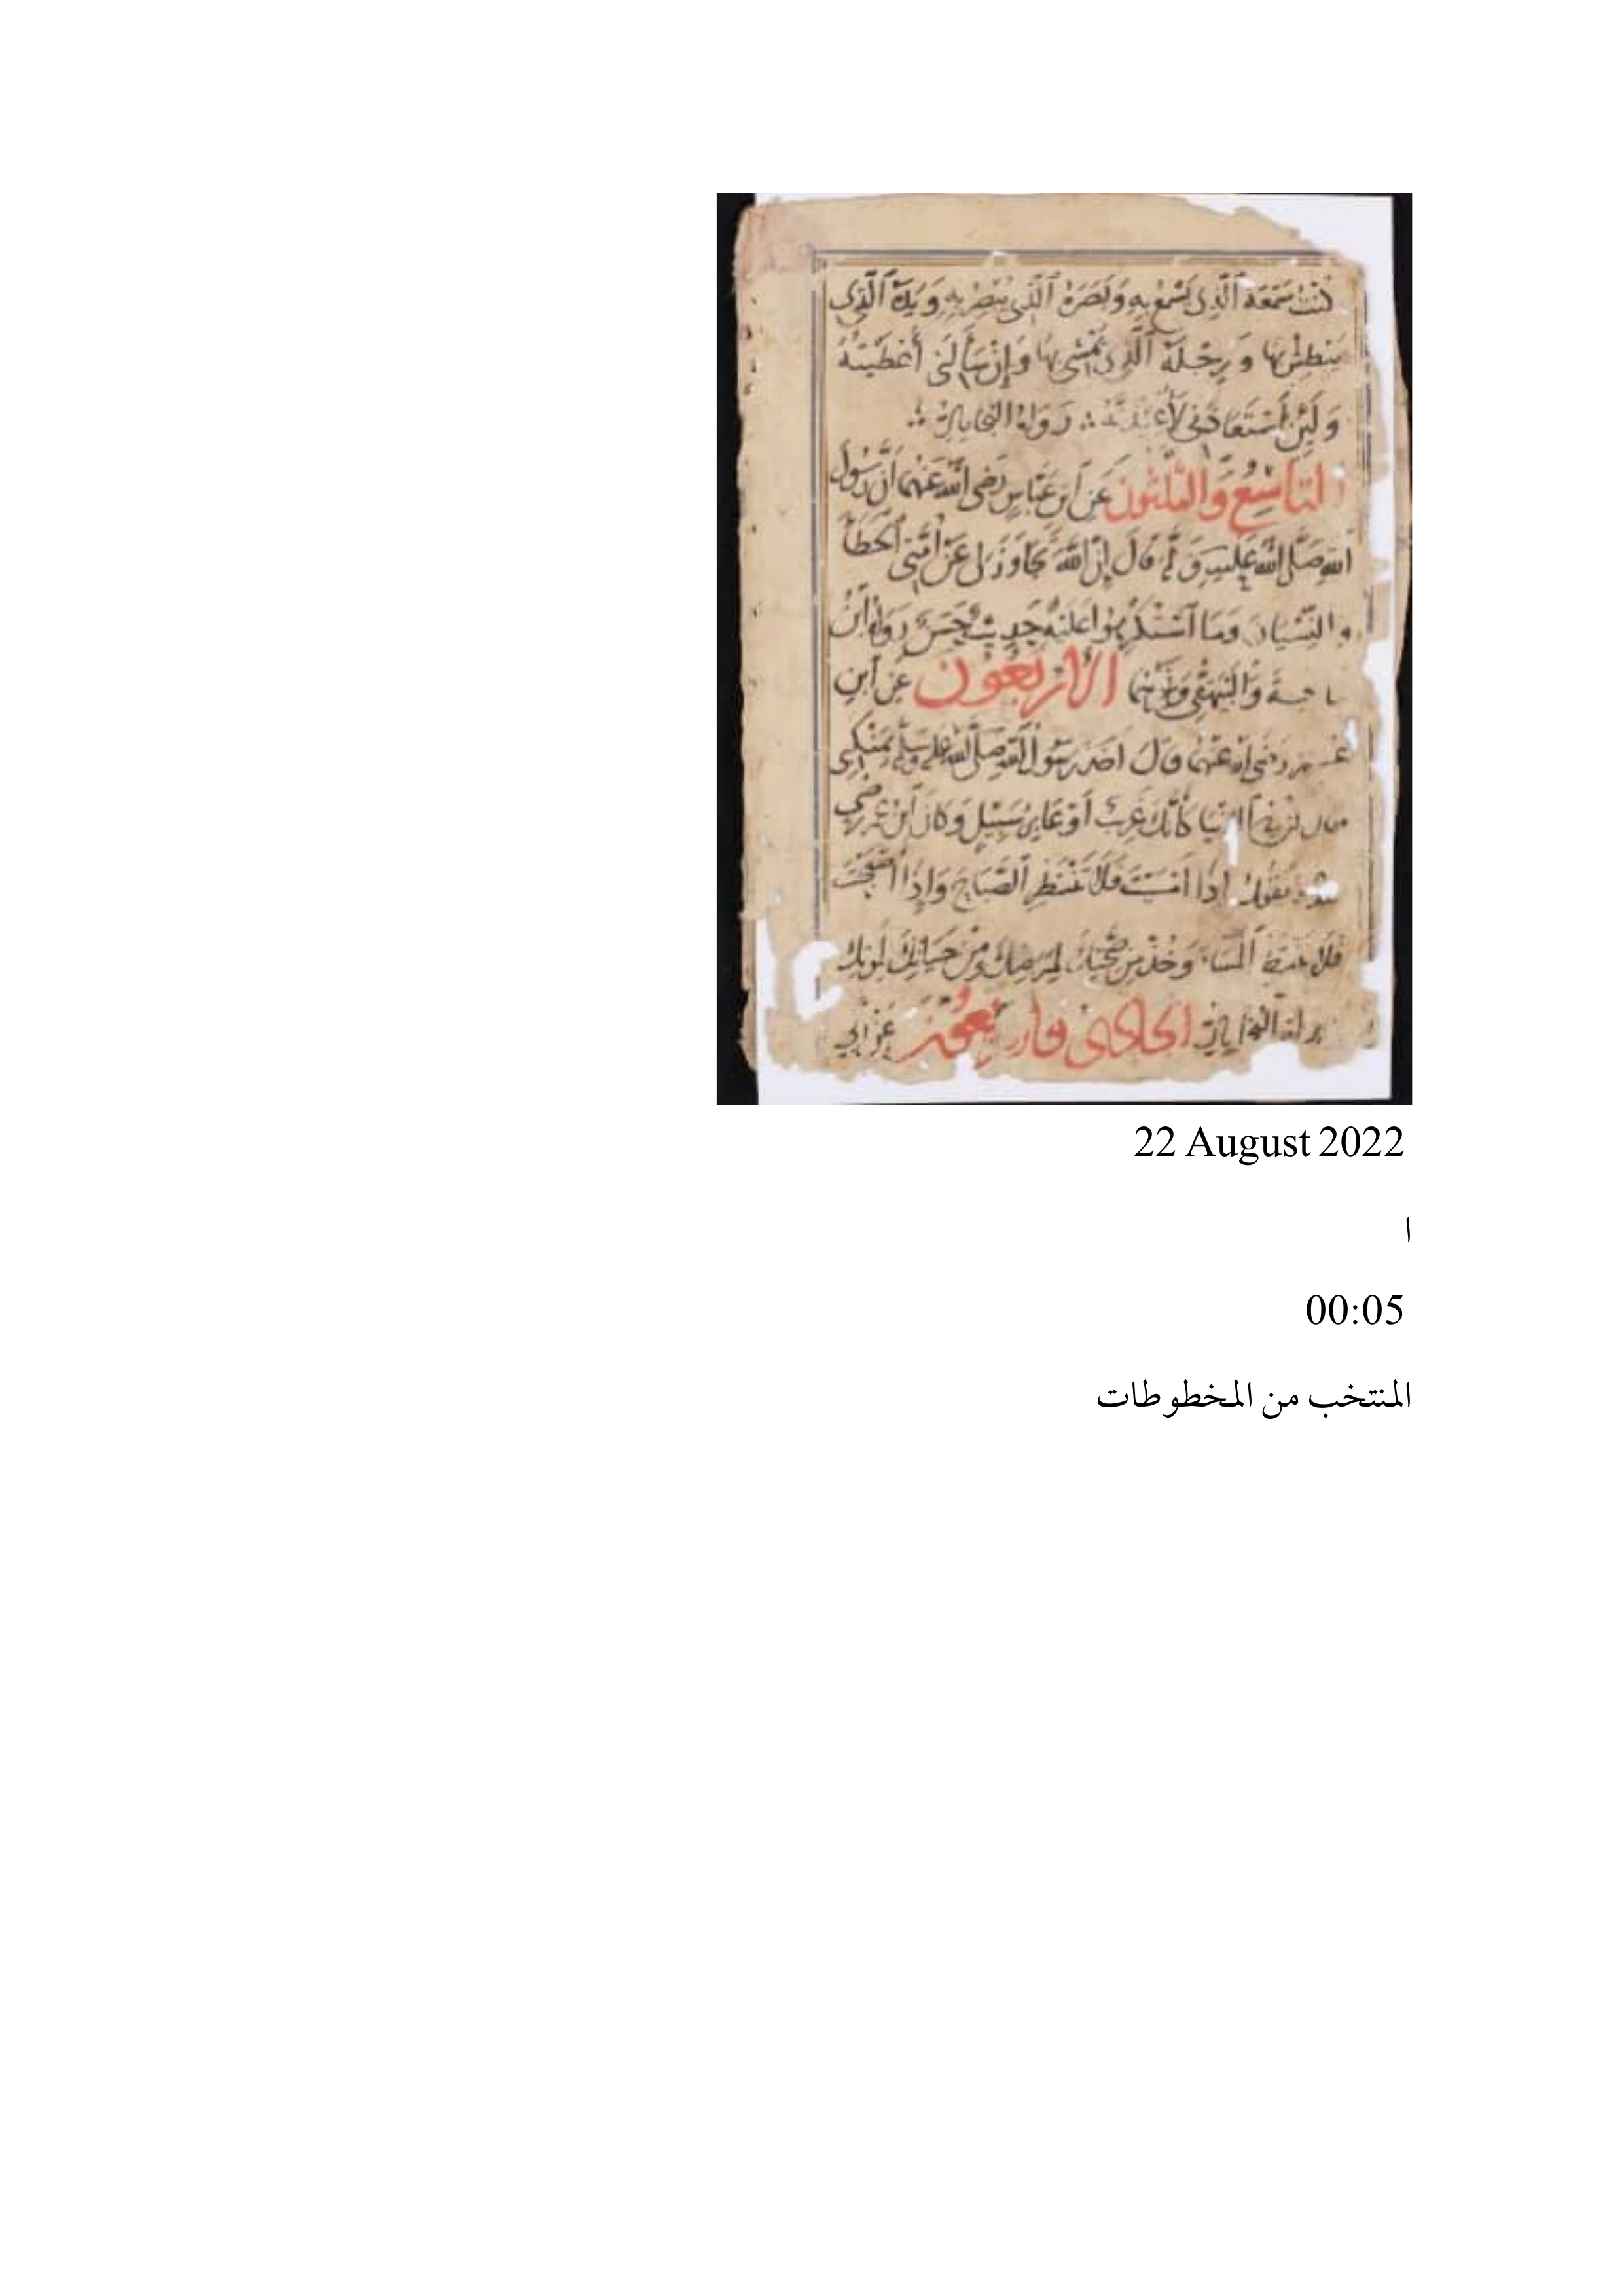 كنت سَمْعَهُ الَّذِي يَسْمَعُ بِهِ وَبَصَرَهُ الَّذِي يُبْصِرُ بِهِ وَيَدَهُ الَّتِي
يَبْطِشُ بِهَا وَرِجْلَهُ الَّتِي يَمْشِي بِهَا وَإِنْ سَأَلَنِي أَعْطَيْتُهُ
وَلَئِنْ اسْتَعَاذَنِي لَأُعِيذَنَّهُ رَوَاهُ البخاري
التاسع والثلثون عَنِ ابْنِ عَبَّاسٍ رَضِيَ اللَّهُ عَنْهُمَا أَنَّ رَسُولَ
اللَّهِ صَلَّى اللَّهُ عَلَيْهِ وَسَلَّمَ قَالَ إِنَّ اللَّهَ تَجَاوَزَ لِي عَنْ أُمَّتِي الْخَطَأَ
والنِّسْيَانَ وَمَا اسْتُكْرِهُوا عَلَيْهِ حَدِيثٌ حَسَنٌ رَوَاهُ ابْنُ
ماجة وَالْبَيْهَقِي وَغَيْرُهُمَا الاربعون عَنِ ابْنِ
عمر رضي الله عَنْهُمَا قَالَ اخذ رَسُولُ اللَّهِ صَلَّى اللَّهُ عَلَيْهِ وَسَلَّمَ بِمَنْكِبِي
فقال كن في الدنيا كَأَنَّكَ غَرِيبٌ أَوْ عَابِرُ سَبِيلٍ وَكَانَ ابْنُ عُمَرَ رضي
الله يَقُولُ إِذَا امسيت فَلَا تَنْتَظِرِ الصَّبَاحَ وَإِذَا أصبحت
فلا تنتظر المساء وَخُذْ مِنْ صحتك لمرضك وَمِنْ حَيَاتِكَ لموتك
رواه البخاري الحادي واربعون عن ابي
22 August 2022
ا
00:05
المنتخب من المخطوطات